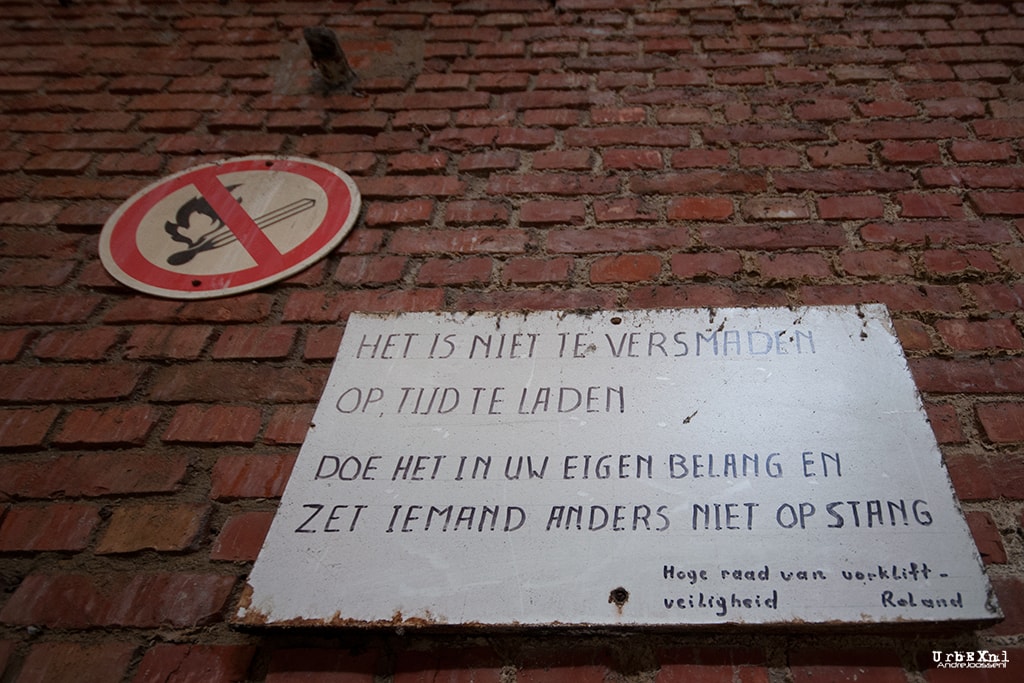 HET IS NIET TE VERSMADEN
OP TIJD TE LADEN
DOE HET IN UW EIGEN BELANG EN
ZET IEMAND ANDERS NIET OP STANG
Hoge raad van vorklift-
veiligheid Roland
UrbEXnl
AndreJoosseni